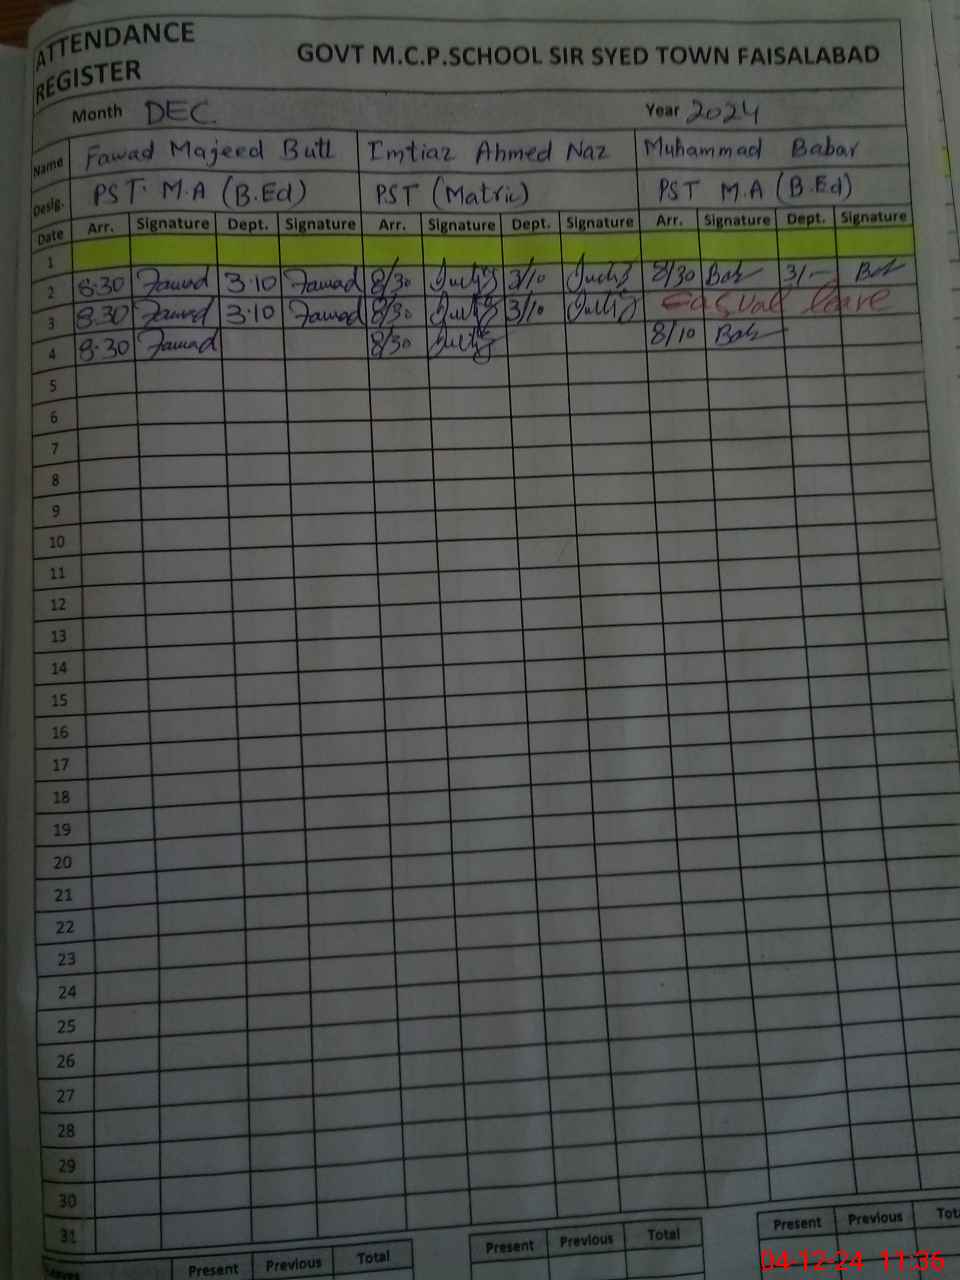 ATTENDANCE REGISTER
GOVT M.C.P.SCHOOL SIR SYED TOWN FAISALABAD
Month DEC Year 2024
Name Fawad Majeed Butt Imtiaz Ahmed Naz Muhammad Babar
Desig. PST. M.A (B.Ed) PST (Matric) PST M.A (B.Ed)
Date Arr. Signature Dept. Signature Arr. Signature Dept. Signature Arr. Signature Dept. Signature
1
2 8.30 Fawad 3.10 Fawad 8/30 3/10 8/30 Bab 3/- Bab
3 8.30 Fawad 3.10 Fawad 8/30 3/10 Casual leave
4 8.30 Fawad 8/30 8/10 Bab
5
6
7
8
9
10
11
12
13
14
15
16
17
18
19
20
21
22
23
24
25
26
27
28
29
30
31
Present Previous Total Present Previous Total Present Previous
04-12-24 11:36